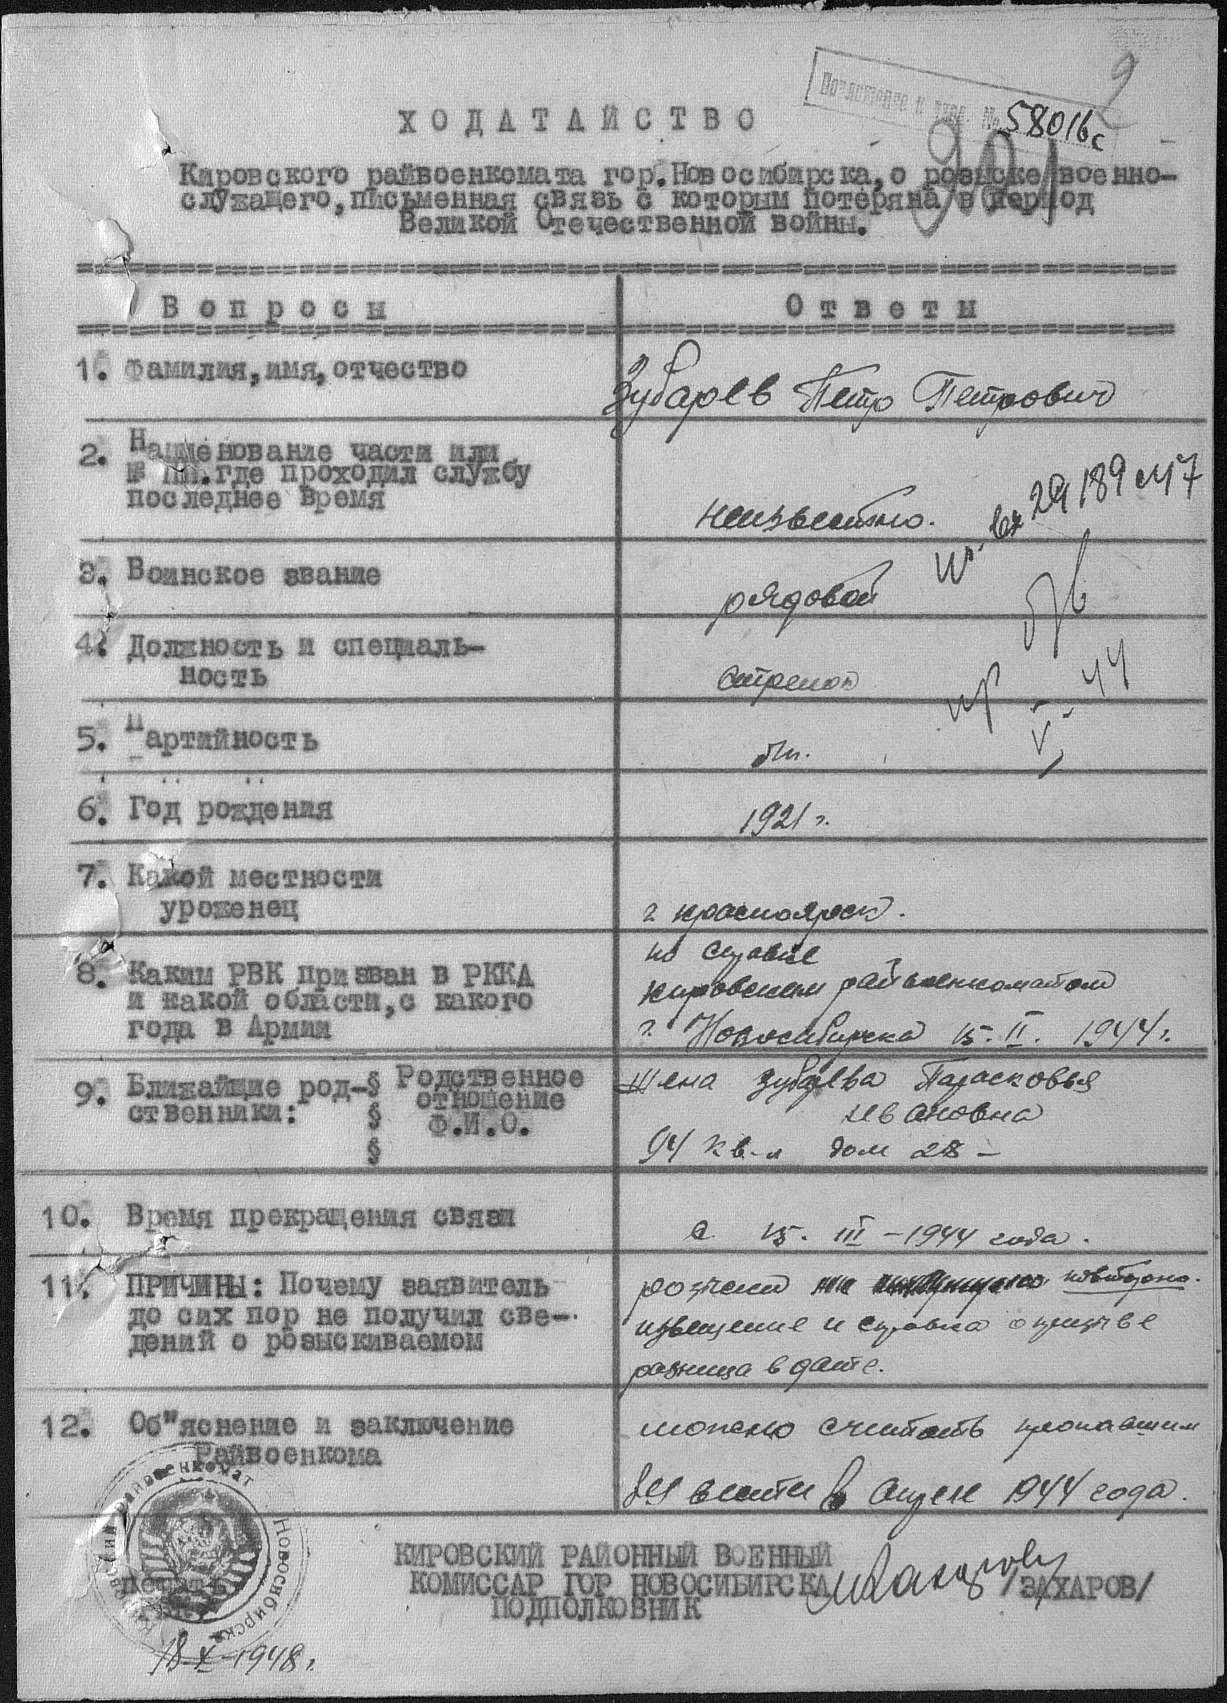 2
Донесение и вхд. № 58016с
901
ХОДАТАЙСТВО
Кировского райвоенкомата гор.Новосибирска,о розыске военно-
служащего,письменная связь с которым потеряна в период
Великой Отечественной войны.
Вопросы
Ответы
1. Фамилия,имя,отчество
Зубарев Петр Петрович
2. Наименование части или
№ ПП.где проходил службу
последнее время
неизвестно.
29189
3. Воинское звание
рядовой
4. Должность и специаль-
ность
стрелок
пр
V-44
5. Партийность
бп.
6. Год рождения
1921 г.
7. Какой местности
уроженец
г Красноярск.
8. Каким РВК призван в РККА
и какой области,с какого
года в Армии
по справке
Кировским райвоенкоматом
г. Новосибирска 15.II. 1944 г.
9. Ближайшие род-
ственники:
§
§
§
Родственное
отношение
Ф.И.О.
Жена Зубарева Парасковья
Ивановна
94 кв-л дом 28 -
10. Время прекращения связи
с 15. III - 1944 года.
11. ПРИЧИНЫ: Почему заявитель
до сих пор не получил све-
дений о розыскиваемом
розыски повторно.
извещение и справка о призыве
разница в дате.
12. Об"яснение и заключение
Райвоенкома
можно считать пропавшим
без вести в апреле 1944 года.
КИРОВСКИЙ РАЙОННЫЙ ВОЕННЫЙ
КОМИССАР ГОР НОВОСИБИРСКА
ПОДПОЛКОВНИК
/ЗАХАРОВ/
Кировский райвоенкомат
Новосибирска
Печать
18-X-1948 г.